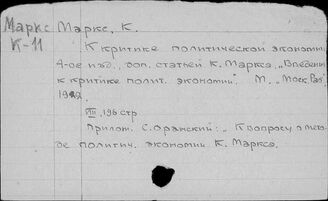 Маркс Маркс, К.
К-11
К критике политической экономии
4-ое изд., доп. статьей К. Маркса „Введение
к критике полит. экономии". М. „Моск. Раб."
VIII, 196 стр
Прилож. С. Оранский: „К вопросу о мето-
де политич. экономии К. Маркса.